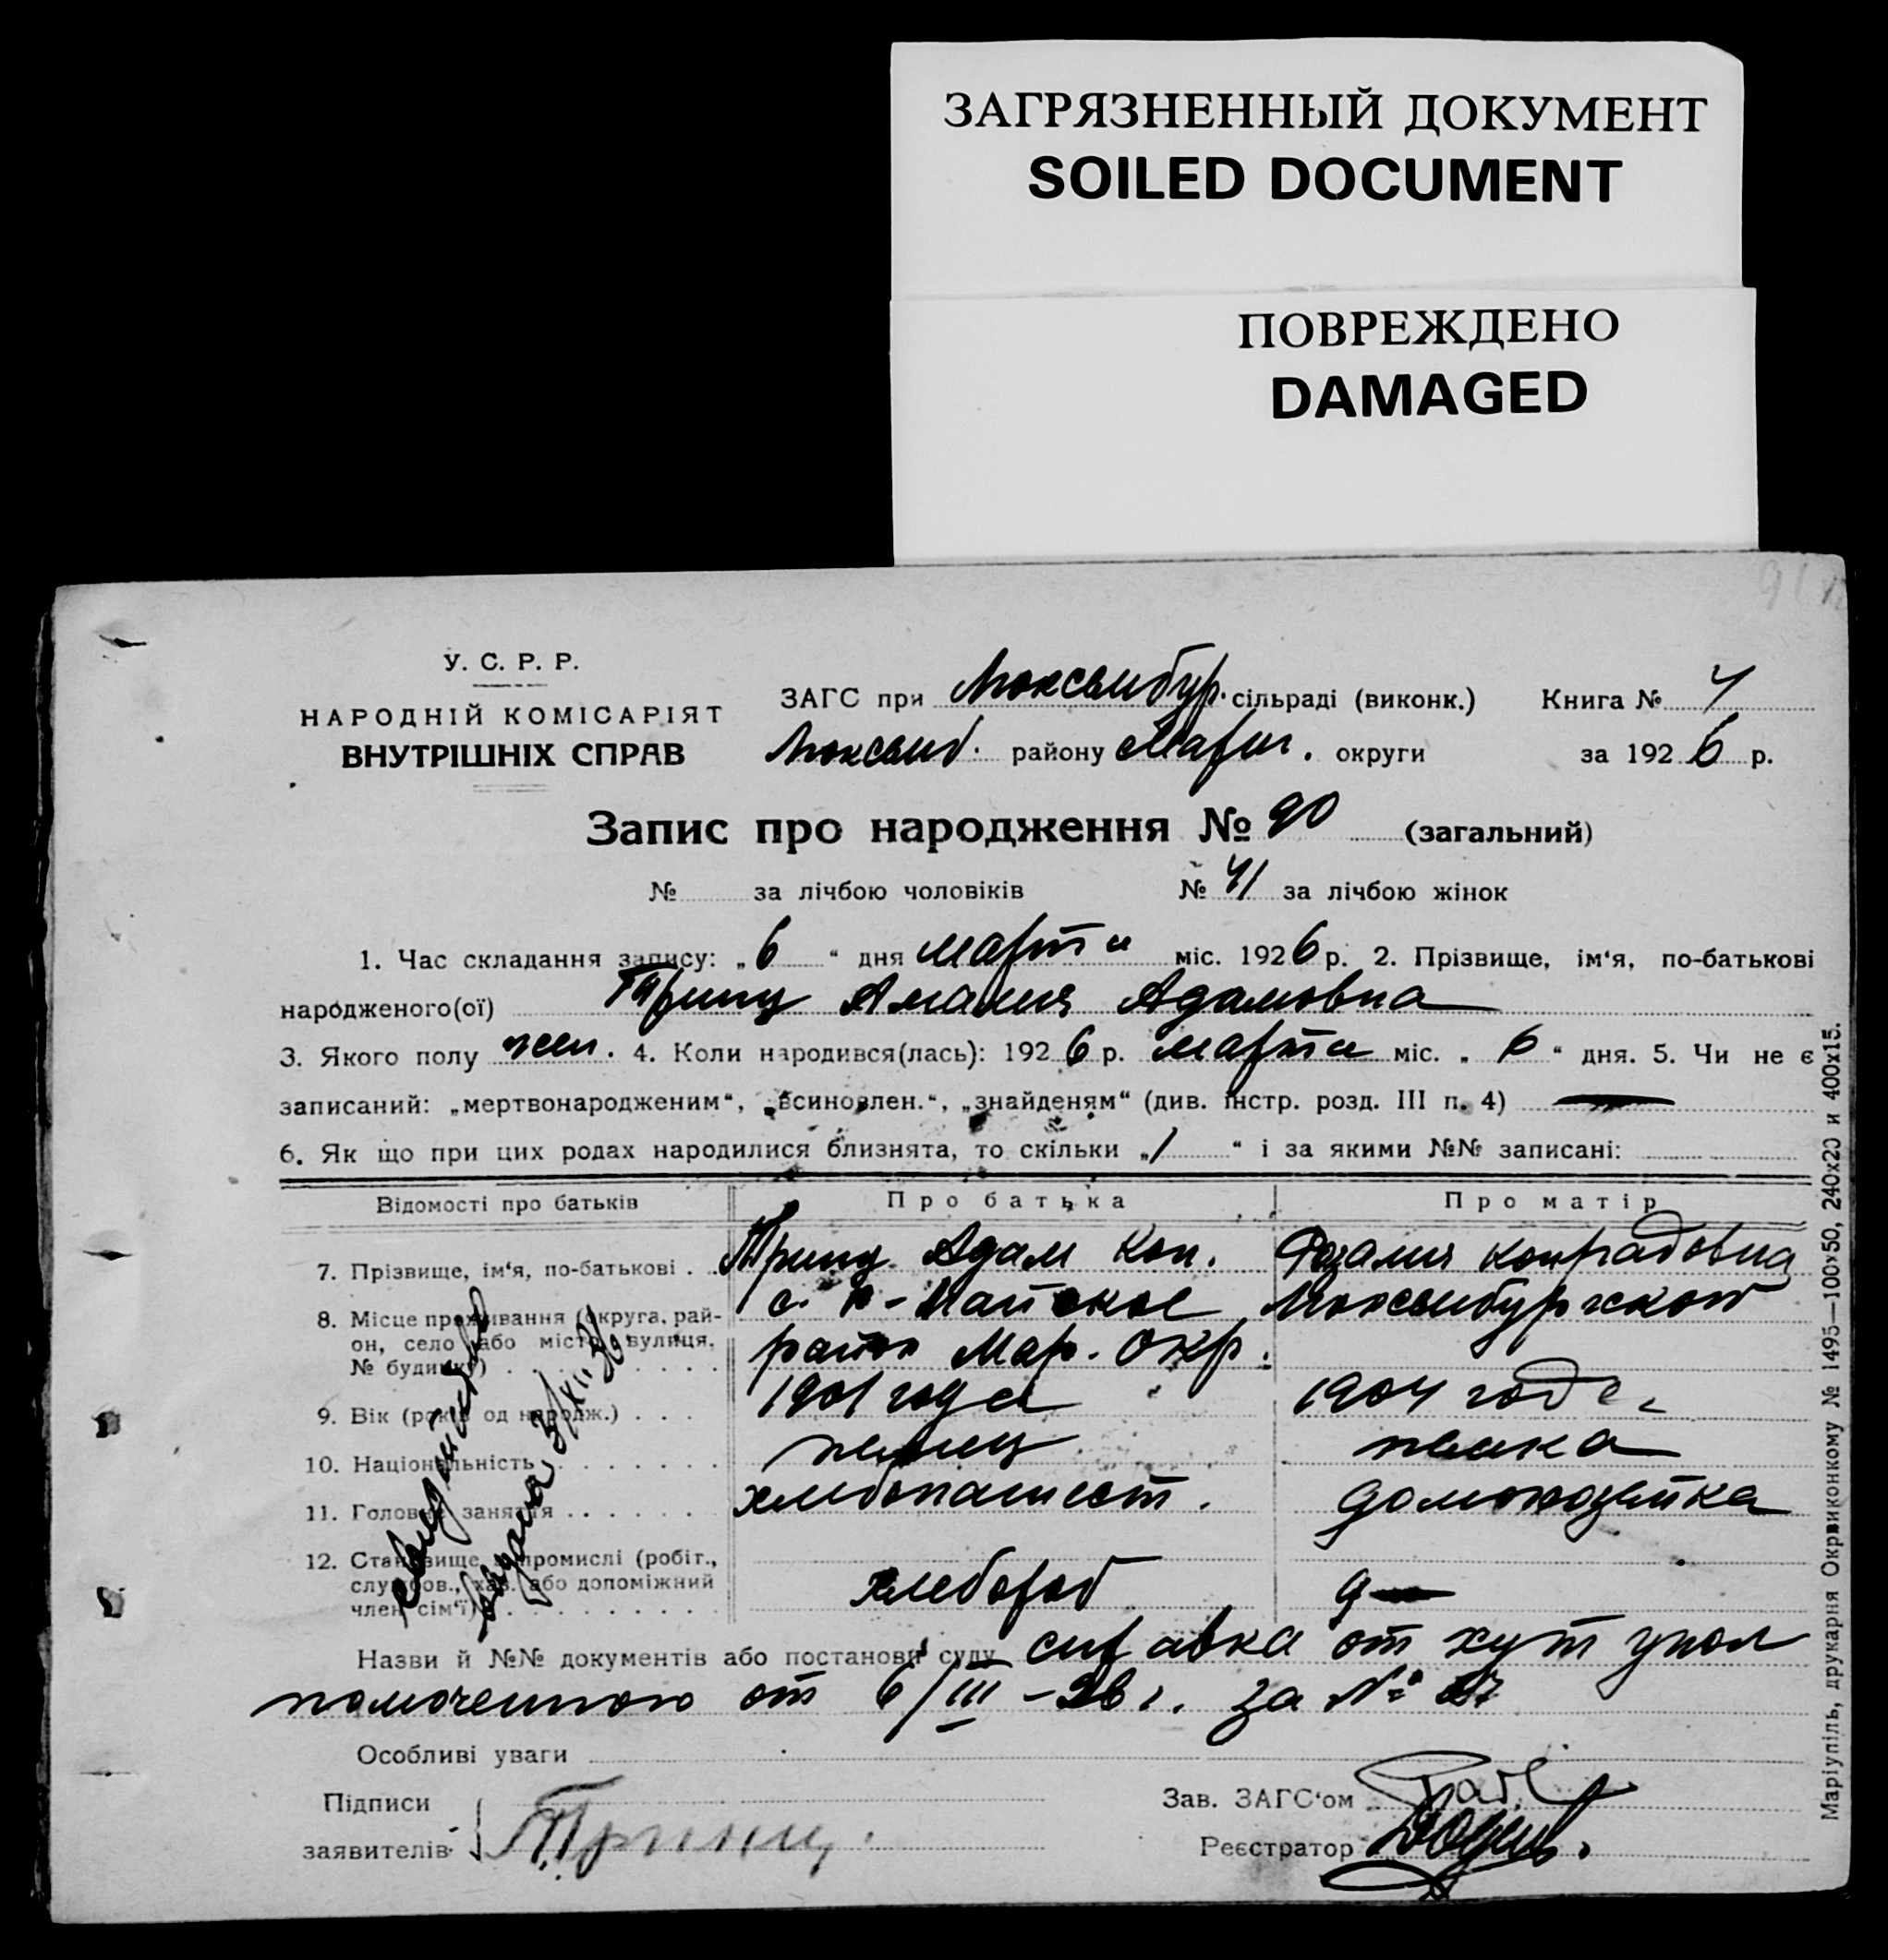 ЗАГРЯЗНЕННЫЙ ДОКУМЕНТ
SOILED DOCUMENT
ПОВРЕЖДЕНО
DAMAGED
У. С. Р. Р.
НАРОДНІЙ КОМІСАРІЯТ
ВНУТРІШНІХ СПРАВ
ЗАГС при Люксембур. сільраді (виконк.) Книга №
Люксемб. району Мариг. округи за 1926 р.
Запис про народження № 90 (загальний)
№ за лічбою чоловіків № 41 за лічбою жінок
1. Час складання запису: „6“ дня марта міс. 1926 р. 2. Прізвище, ім‘я, по-батькові
народженого(ої) Принц Амалия Адамовна
3. Якого полу жен. 4. Коли народився(лась): 1926 р. марта міс. „6“ дня. 5. Чи не є
записаний: „мертвонародженим“, „всиновлен.“, „знайденям“ (див. інстр. розд. III п. 4)
6. Як що при цих родах народилися близнята, то скільки „1“ і за якими №№ записані:
Відомості про батьків Про батька Про матір
7. Прізвище, ім‘я, по-батькові . . Принц Адам Кон. Розалия Конрадовна
8. Місце проживання (округа, рай-
он, село або місто, вулиця,
№ будинку)
с. Майское Люксембургской
район Мар. Окр.
9. Вік (років од народж.) . . . 1901 года 1904 года
10. Національність немец немка
11. Головне заняття хлебопашест. домохозяйка
12. Становище в промислі (робіт.,
службов., хаз. або допоміжний
член сім‘ї) хлебороб
Назви й №№ документів або постанови суду справка от хут упол
номоченного от 6/III-26 г. за № 27
Особливі уваги
Підписи
заявителів Принц.
Зав. ЗАГС‘ом
Реєстратор
выдана 3/XII
Маріупіль, друкарня Окрвиконкому № 1495—100×50, 240×20 и 400×15.